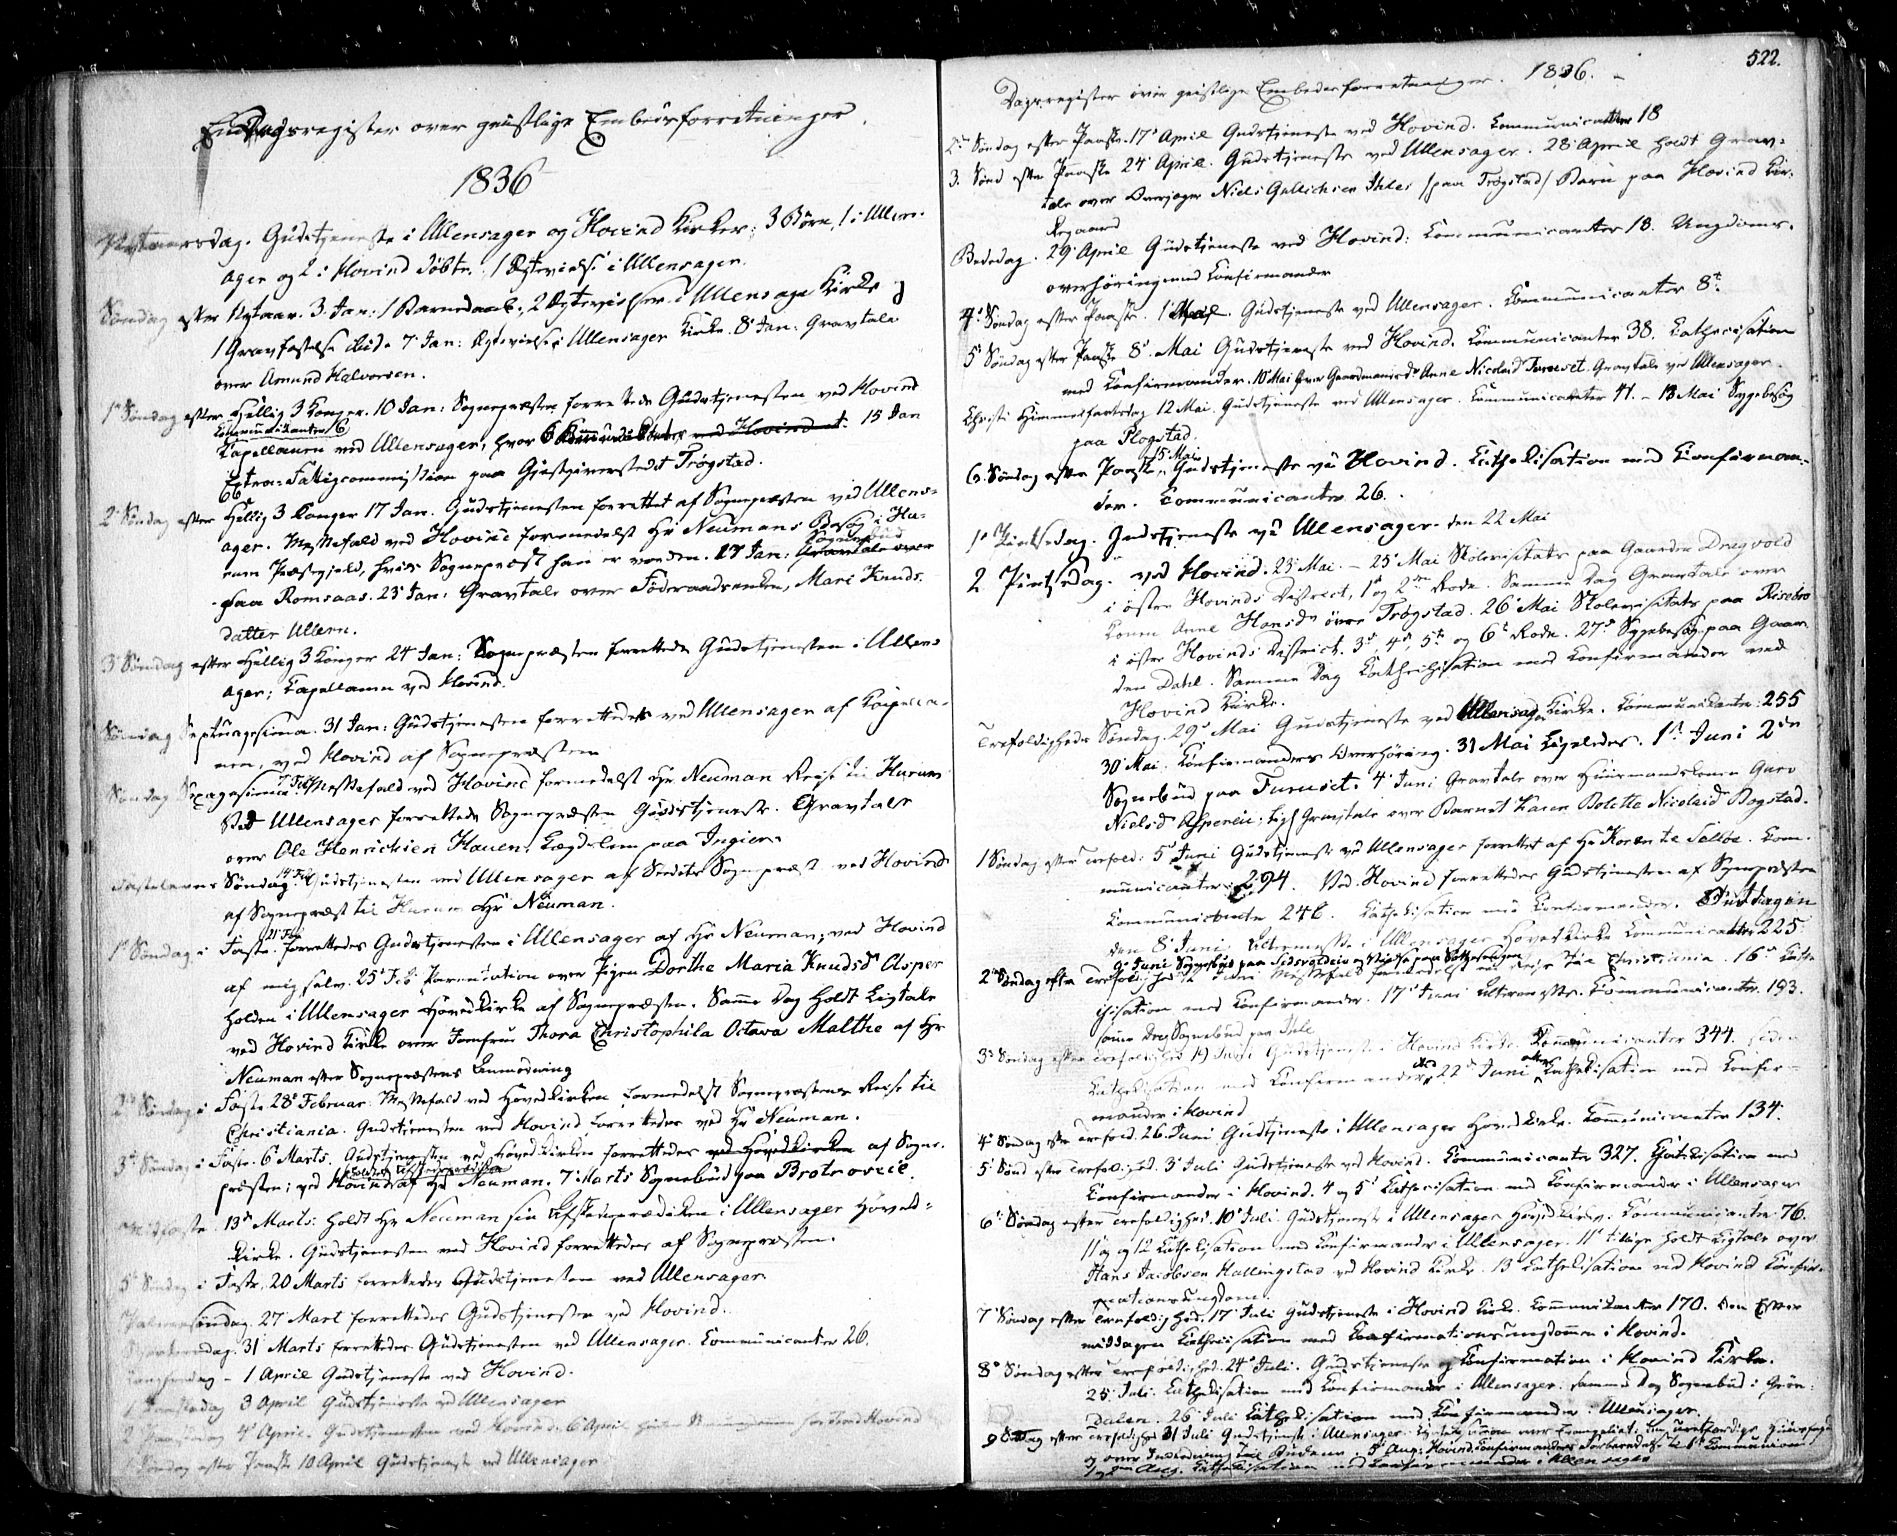 Dagsregister over geistlige Embedsforretninger.
1836
Nytaarsdag. Gudstjeneste i Ullensager og Hovind Kirker; 3 Børn, 1 i Ullens-
ager og 2 i Hovind døbte. 1 Ægtevielse i Ullensager.
Søndag efter Nytaar. 3. Jan: 1 Barnedaab, 2 Ægtevielser i Ullensager Kirke og
1 Gravfæstelse ibid. 7 Jan: Ægtevielse i Ullensager Kirke. 8 Jan: Gravtale
over Amund Halvorsen.
1ste Søndag efter Hellig 3 Konger. 10 Jan: Sognepræsten forrettede Gudstjenesten ved Hovind
Communicanter 16
Capellanen ved Ullensager, hvor 6 Communicanter ved Hovind. 15 Jan
Extra: Fattigcommission paa Gjæstgiverstedet Trøgstad.
2 Søndag efter Hellig 3 Konger 17 Jan. Gudstjenesten forrettet af Sognepræsten ved Ullens-
ager. Messefald ved Hovind formedelst Hr Neumans Besøg i Hu-
rum Præstegjeld, hvis Sognepræst han er vorden. 17 Jan: Gravtale over
Sognebud
paa Romsaas. 23 Jan: Gravtale over Føderaadsenken, Mari Knuds-
datter Ullern.
3 Søndag efter Hellig 3 Konger 24 Jan: Sognepræsten forrettede Gudstjenesten i Ullens
ager; Capellanen ved Hovind.
Søndag Septuagesima. 31 Jan: Gudstjenesten forrettedes ved Ullensager af Capella-
nen, ved Hovind af Sognepræsten
Søndag Sexagesima 7 Feb. Messefald ved Hovind formedelst Hr Neuman Reise til Hurum
Ved Ullensager forrettede Sognepræsten Gudstjeneste. Gravtale
over Ole Henrichsen Hauen, Lægdslem paa Ingier.
Fastelavns Søndag 14 Feb. Gudstjenesten ved Ullensager af Stedets Sognepræst ved Hovind
af Sognepræst til Hurum Hr Neuman.
1ste Søndag i Faste 21 Feb. forrettedes Gudstjenesten i Ullensager af Hr Neuman; ved Hovind
af mig selv. 25 Feb Parentation over Pigen Dorthe Maria Knudsdr Asper
holden i Ullensager Hovedkirke af Sognepræsten. Samme Dag holdt Ligtale
ved Hovind Kirke over Jomfrue Thora Christophila Octava Malthe af Hr
Neuman efter Sognepræstens Anmodning
2den Søndag i Faste 28 Februar. Messefald ved Hovedkirken formedelst Sognepræstens Reise til
Christiania. Gudstjenesten ved Hovind forrettedes ved Hr Neuman.
3die Søndag i Faste. 6 Marts. Gudstjenesten ved Hovedkirken forrettedes ved Hovedkirken af Sogne-
holdt Afskedsprædiken
præsten; ved Hovind af Hr Neuman. 7 Marts Sognebud paa Brotroveie.
Midfaste. 13de Marts: holdt Hr Neuman sin Afskedsprædiken i Ullensager Hoved-
kirke. Gudstjenesten ved Hovind forrettedes af Sognepræsten.
5te Søndag i Faste. 20 Marts forrettedes Gudstjenesten ved Ullensager
Palmesøndag. 27 Mart forrettedes Gudstjenesten ved Hovind.
Skjærtorsdag. 31 Marts forrettedes Gudstjenesten ved Ullensager. Communicanter 26.
Langfredag - 1 April Gudstjeneste ved Hovind.
1 Paaskedag 3 April Gudstjeneste ved Ullensager
2 Paaskedag 4 April. Gudstjenesten ved Hovind. 6 April
1 Søndag efter Paaske 10 April Gudstjeneste ved Ullensager
522.
Dagsregister over geistlige Embedsforretninger. 1836. -
2den Søndag efter Paaske. 17 April Gudstjeneste ved Hovind. Communicanter 18
3. Sønd efter Paaske 24 April. Gudstjeneste ved Ullensager. 28 April holdt Grav-
tale over Oversøger Niels Gullichsen Ihles /paa Trøgstad/ Barn paa Hovind Kir-
kegaard
Bededag. 29 April Gudstjeneste ved Hovind: Communicanter 18. Ungdoms-
overhøring med Confirmander
4de Søndag efter Paaske. 1 Mai. Gudstjeneste ved Ullensager. Communicanter 8te
5 Søndag efter Paaske 8 Mai Gudstjeneste ved Hovind. Communicanter 38. Cathecisation
med Confirmander. 10 Mai over Gaardmandsdr Anne Nicolaisd Furuset. Gravtale ved Ullensager.
Christi Himmelfartsdag 12 Mai. Gudstjeneste ved Ullensager. Communicanter 41. - 13 Mai Sygebesøg
paa Flogstad.
6. Søndag efter Paaske 15 Mai Gudstjeneste ved Hovind. Cathekisation med Confirman-
der. Communicanter 26.
1ste Pintsedag. Gudstjeneste ved Ullensager. den 22 Mai
2 Pintsedag. ved Hovind. 23 Mai. - 25 Mai Skolevisitats paa Gaarden Dragvold
i østre Hovinds District, 1ste og 2den Rode. Samme Dag Gravtale over
Konen Anne Hansdr øvre Trøgstad. 26 Mai Skolevisitats paa Risebro
i øster Hovinds District. 3die, 4de, 5te og 6te Rode. 27de Sygebesøg paa Gaar-
den Dahl. Samme Dag Cathechisation med Confirmander ved
Hovind Kirke.
Trefoldigheds Søndag. 29 Mai Gudstjeneste ved Ullensager Kirke. Communicanter: 255
30 Mai. Confirmanders Overhøring. 31 Mai ligeledes. 1ste Juni 2den
Sognebud paa Furuset. 4 Juni Gravtale over Huusmandskonen Guro
Nielsd ; ligl Gravtale over Barnet Karen Bolette Nicolaid Bogstad.
1 Søndag efter Trefold: 5 Juni Gudstjeneste ved Ullensager forrettet af Hr. Com-
municanter: 294. Ved Hovind forrettedes Gudstjenesten af Sognepræsten
Communicanter 246. Cathekisation med Confirmander.
den 8 Juni Altermesse i Ullensager Hovedkirke Communicanter 225
9 Juni Sognebud paa
2den Søndag efter Trefoldighed 12 Juni Messefald formedelst en Reise til Christiania. 16de Cathe
chisation med Confirmander. 17 Juni Altermesse. Communicanter 193.
samme Dag Sognebud paa Ihle
3die Søndag efter Trefoldighed 19 Juni Gudstjeneste i Hovind Kirke. Communicanter 344.
Cathekisation med Confirmander. 22 Juni Cathekisation med Confir-
mander i Hovind
4de Søndag efter Trefold. 26 Juni Gudstjeneste i Ullensager Hovedkirke. Communicanter 134.
5 Sønd efter Trefoldighed. 3 Juli Gudstjeneste ved Hovind. Communicanter 327. Cathekisation med
Confirmander i Hovind. 4 og 5 Cathecisation med Confirmander i Ullensager
6te Søndag efter Trefoldighed. 10 Juli. Gudstjeneste i Ullensager Hovedkirke. Communicanter 76.
11 og 12 Cathekisation med Confirmander i Ullensager. 11 tillige holdt Ligtale over
Hans Jacobsen Hallingstad ved Hovind Kirke. 13 Cathekisation ved Hovind Confir-
mationsungdom.
7 Søndag efter Trefoldighed. 17 Juli Gudstjeneste i Hovind Kirke. Communicanter 170. Om Efter
middagen Cathecisation med Confirmationsungdommen i Hovind.
8de Søndag efter Trefoldighed. 24 Juli. Gudstjeneste og Confirmation i Hovind Kirke.
25 Juli. Cathekisation med Confirmander i Ullensager. Samme Dag Sognebud i Grøn-
dalen. 26 Juli Cathekisation med Confirmander i Ullensager.
9 Søndag efter Trefoldighed 31 Juli Gudstjeneste i Ullensager. over Evangeliet: Den uretfærdige Huusfoged
og over 5 Aug: Hovind Confirmanders Forberedelse til 1ste Communion
Aug. Cathekisation med Confirmander i Ullensager